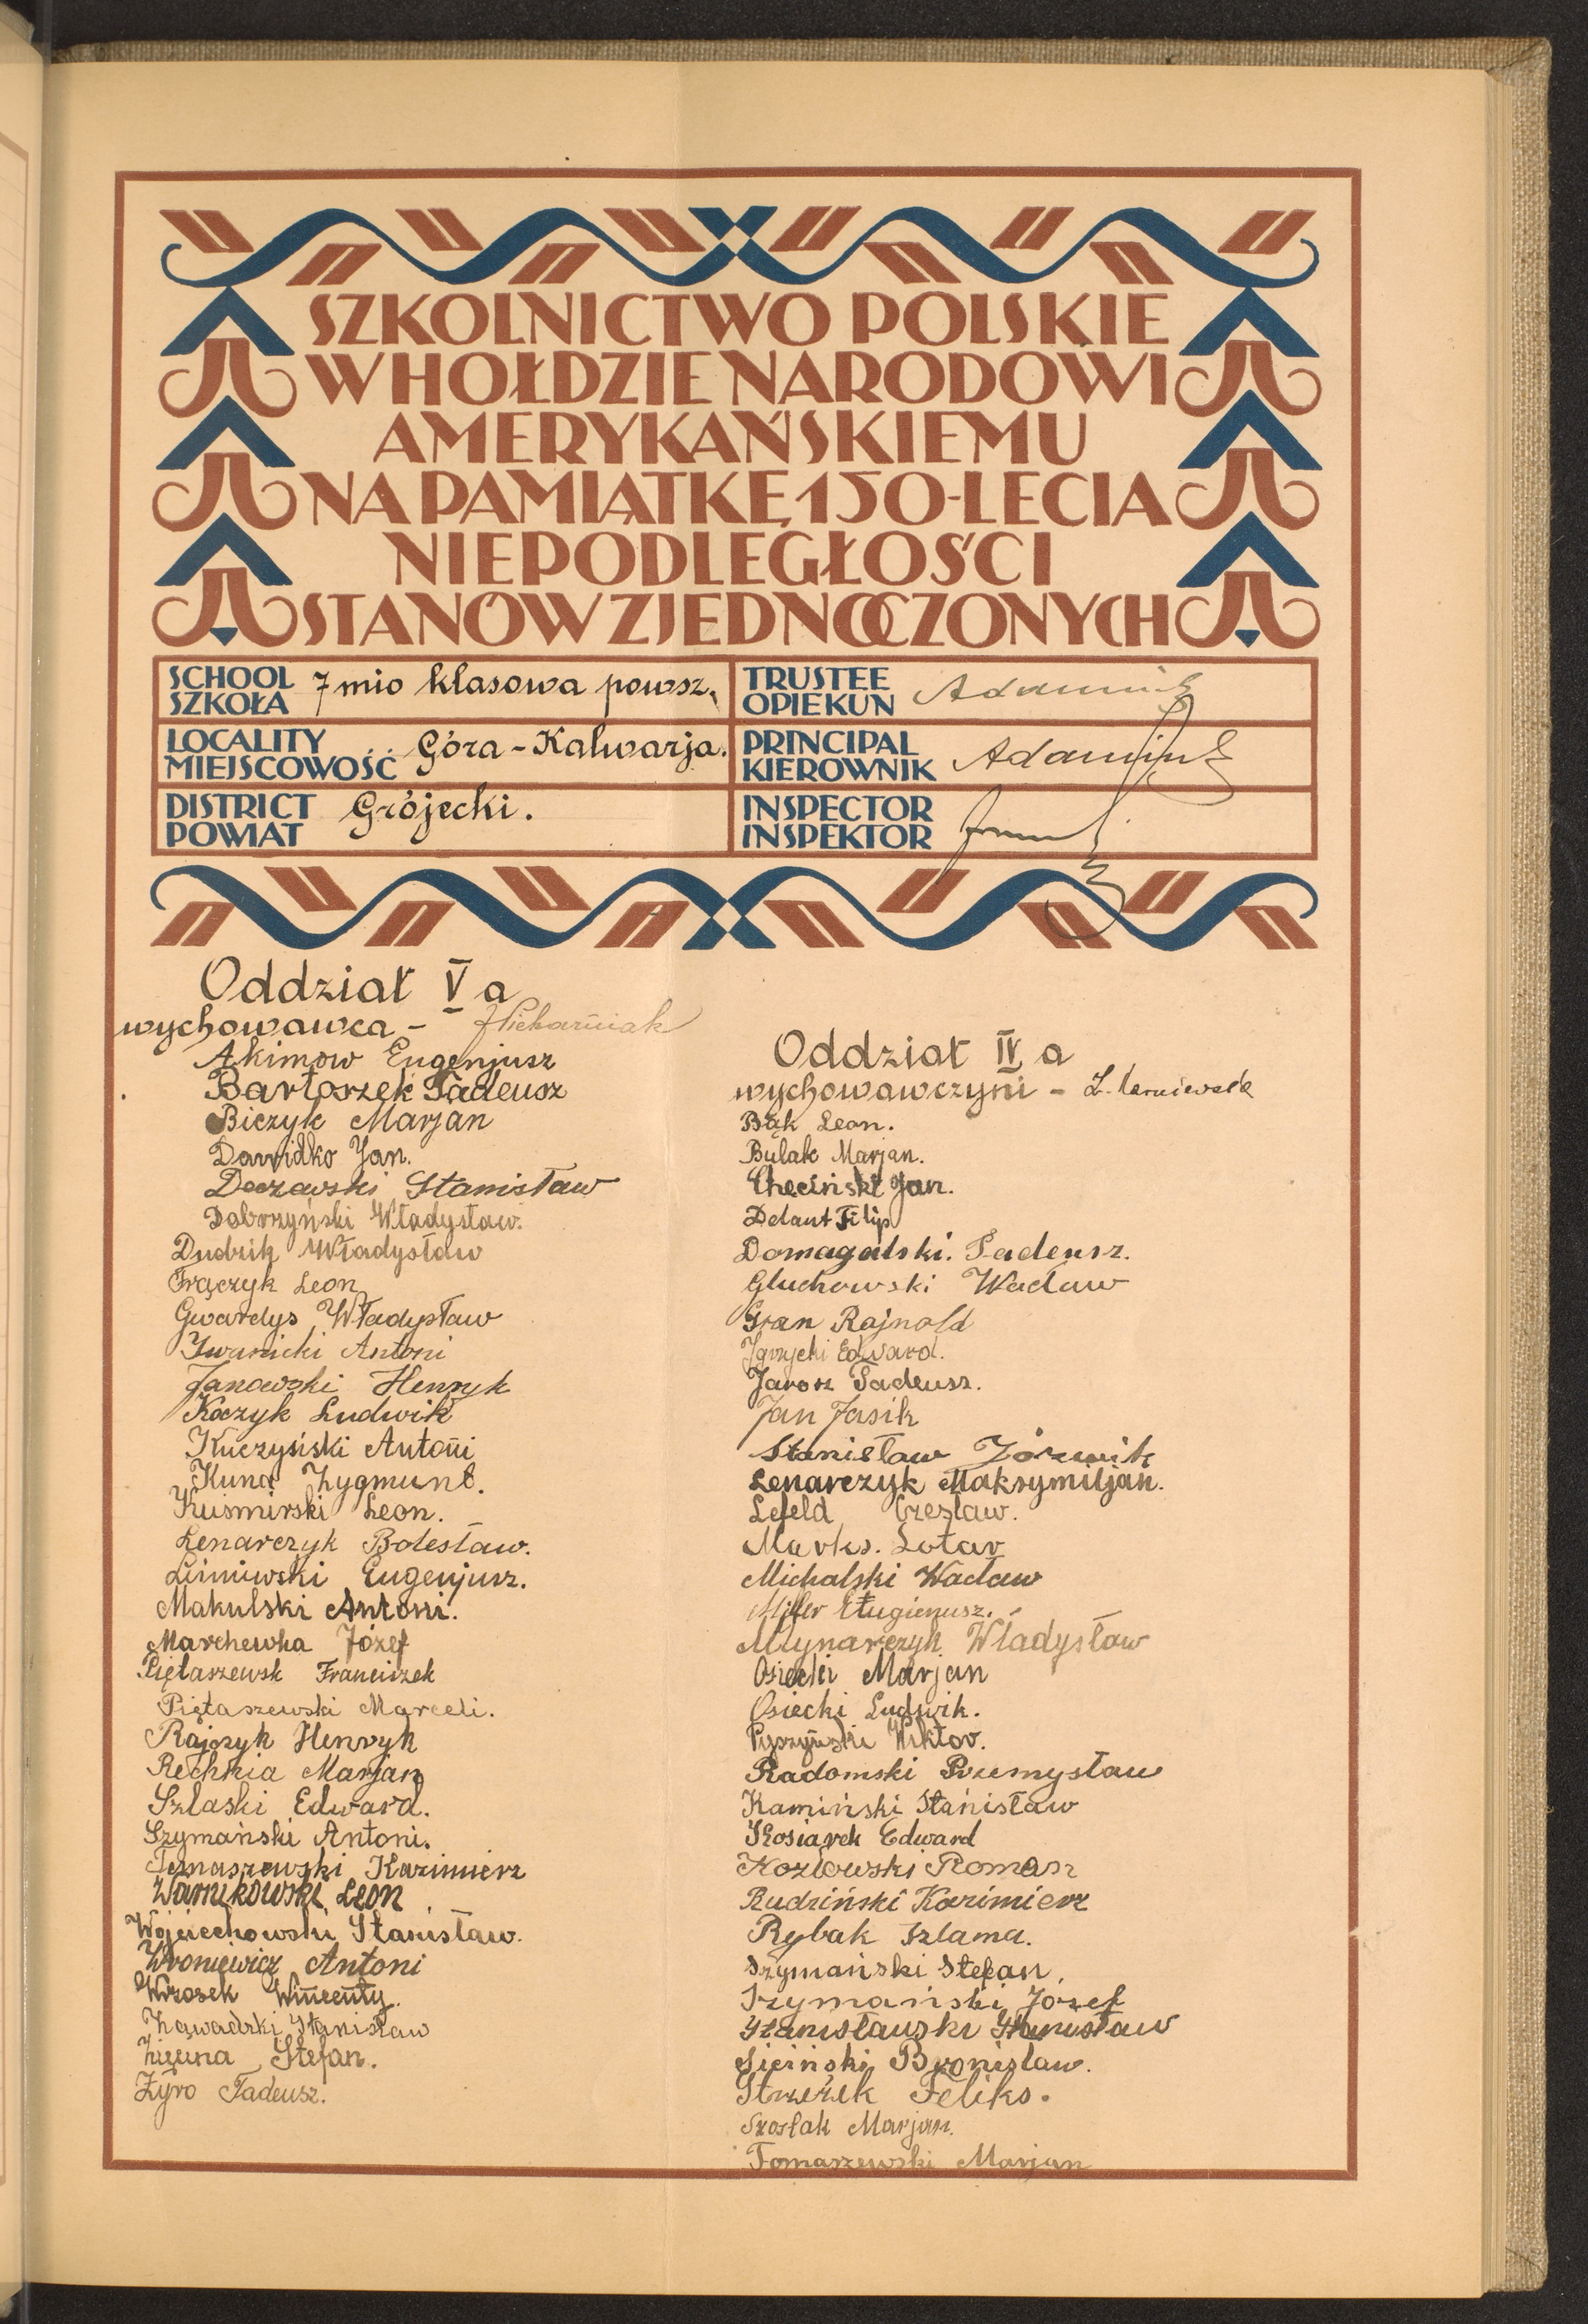 SZKOLNICTWO POLSKIE
W HOŁDZIE NARODOWI
AMERYKAŃSKIEMU
NA PAMIĄTKĘ 150-LECIA
NIEPODLEGŁOŚCI
STANÓW ZJEDNOCZONYCH
SCHOOL
SZKOŁA 7 mio klasowa powsz.
LOCALITY
MIEJSCOWOŚĆ Góra-Kalwarja.
DISTRICT
POWIAT Grójecki.
TRUSTEE
OPIEKUN
PRINCIPAL
KIEROWNIK
INSPECTOR
INSPEKTOR
Oddział V a
wychowawca -
Akimow Eugenjusz
Bartoszek Tadeusz
Biczyk Marjan
Dawidko Jan.
Stanisław
Dobrzyński Władysław.
Dudzik Władysław
Frączyk Leon
Gwardys Władysław
Iwanicki Antoni
Janowski Henryk
Koczyk Ludwik
Kuczyński Antoni
Kuna Zygmunt.
Kuśmirski Leon.
Lenarczyk Bolesław.
Eugenjusz.
Makulski Antoni.
Marchewka Józef
Piętarzewsk Franciszek
Piętaszewski Marceli.
Rajczyk Henryk
Rechnia Marjan
Szlaski Edward.
Szymański Antoni.
Tomaszewski Kazimierz
Leon
Wojciechowski Stanisław.
Wroniewicz Antoni
Wrzosek Wincenty.
Zawadzki Stanisław
Stefan.
Żyro Tadeusz.
Oddział IV a
wychowawczyni -
Bąk Leon.
Bulak Marjan.
Checiński Jan.
Delaut Filip
Domagalski. Tadeusz.
Głuchowski Wacław
Gran Rajnold
Edward.
Jarosz Tadeusz.
Jan Jasik
Stanisław
Lenarczyk Maksymiljan.
Lefeld Czesław.
Marks. Lotar
Michalski Wacław
Miller
Młynarczyk Władysław
Osiecki Marjan
Osiecki Ludwik.
Wiktor.
Radomski Przemysław
Kamiński Stanisław
Kosiarek Edward
Kozłowski Roman
Rudziński Kazimierz
Rybak Szlama.
Szymański Stefan.
Szymański Józef
Stanisławski Stanisław
Siciński Bronisław.
Strzeżek Feliks.
Szoslak Marjan.
Tomaszewski Marjan